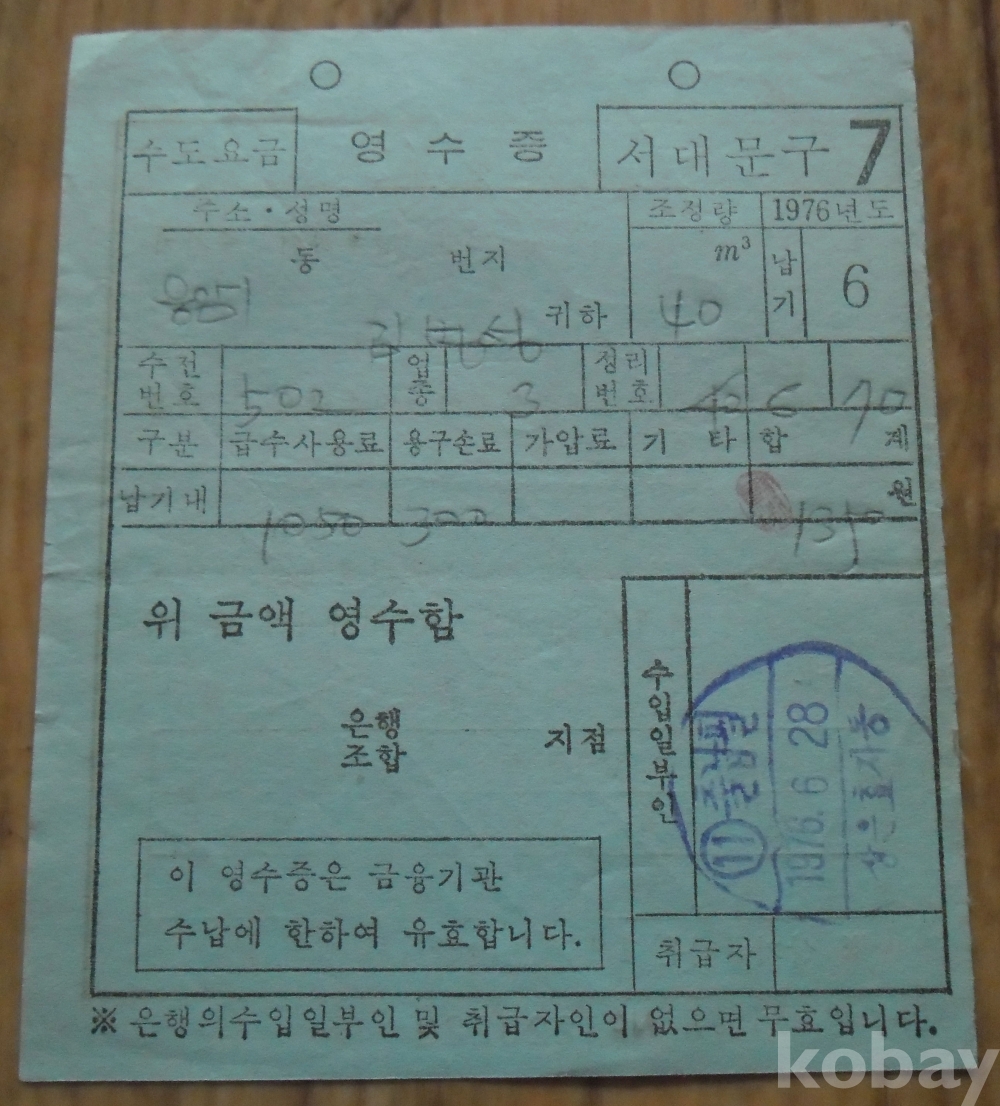 수도요금 영수증 서대문구 7
주소·성명 조정량 1976년도
동 번지 m³ 납기 6
귀하 40
수전번호 502 업종 3 정리번호 6 70
구분 급수사용료 용구손료 가압료 기타 합계
납기내 1050 300 1350 원
위 금액 영수함
은행 조합 지점
수입일부인
⑪
1976. 6 28
상은효자동
이 영수증은 금융기관
수납에 한하여 유효합니다.
취급자
※ 은행의수입일부인 및 취급자인이 없으면 무효입니다.
kobay